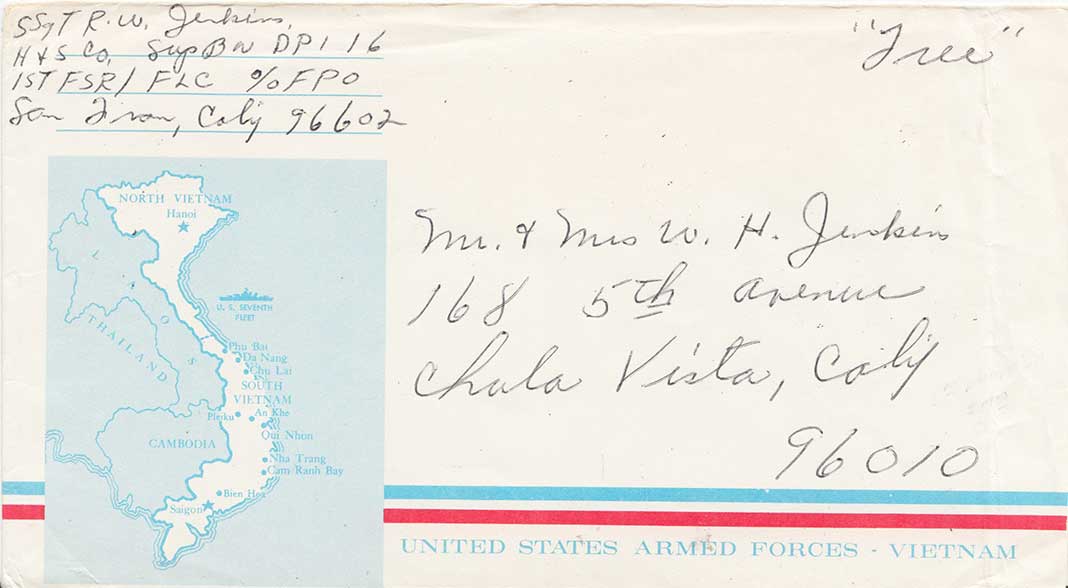 SSgT R. W. Jenkins,
H & S Co, Sup BN DPI 16
1ST FSR/FLC c/o FPO
San Fran, Calif 96602
"Free"
Mr. & Mrs W. H. Jenkins
168 5th Avenue
Chula Vista, Calif
96010
NORTH VIETNAM
Hanoi
LAOS
THAILAND
U. S. SEVENTH
FLEET
Phu Bai
Da Nang
Chu Lai
SOUTH
VIETNAM
Pleiku An Khe
Qui Nhon
CAMBODIA
Nha Trang
Cam Ranh Bay
Bien Hoa
Saigon
UNITED STATES ARMED FORCES - VIETNAM